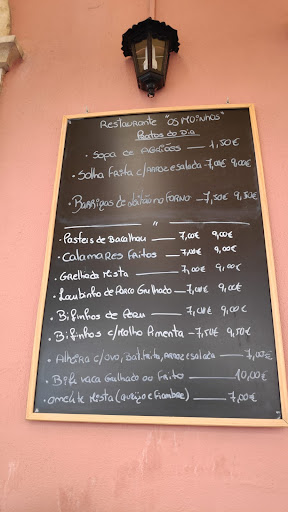 Restaurante "Os Moinhos"
Pratos do Dia
• Sopa de Agriões — 1,50€
• Solha Frita c/arroz e salada - 7,00€ 9,00€
• Barrigas de Leitão no Forno - 7,50€ 9,50€
"
• Pasteis de Bacalhau — 7,00€ 9,00€
• Calamares Fritos — 7,00€ 9,00€
• Grelhada Mista — 7,00€ 9,00€
• Lombinho de Porco Grelhado - 7,00€ 9,00€
• Bifinhos de Peru — 7,00€ 9,00€
• Bifinhos c/Molho Pimenta - 7,50€ 9,50€
• Alheira c/ovo, bat.frita, arroz e salada — 7,00€
• Bife vaca Grelhado ou Frito — 10,00€
• Omelete Mista (queijo e fiambre) — 7,00€